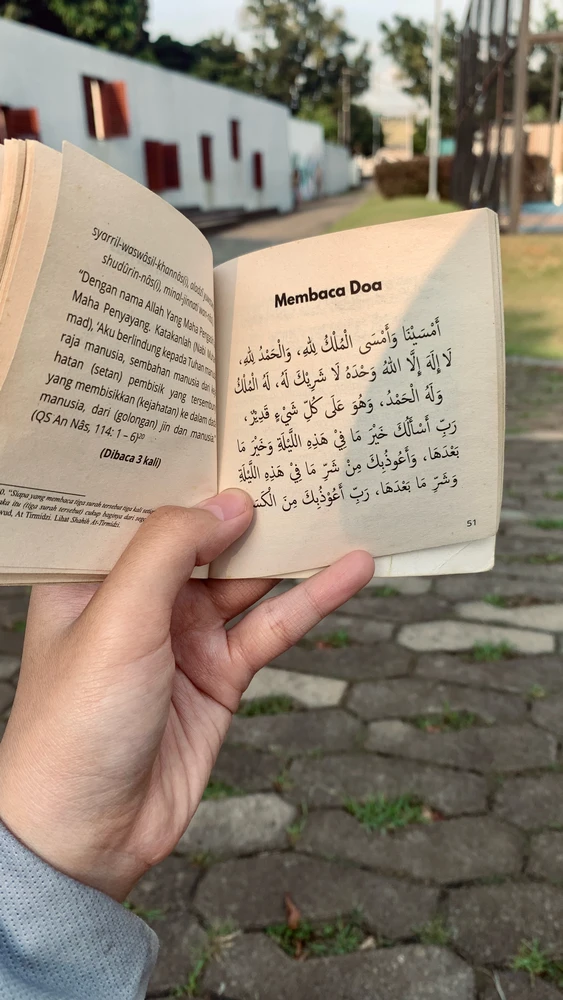 syarril-waswâsil-khannâs(i), alladzî
shudûrin-nâs(i), minal-jinnati
"Dengan nama Allah Yang Maha
Maha Penyayang. Katakanlah (Nabi
mad), 'Aku berlindung kepada Tuhan
raja manusia, sembahan manusia dari
hatan (setan) pembisik yang
yang membisikkan (kejahatan) ke dalam
manusia, dari (golongan) jin dan manusia.'
(QS An Nâs, 114: 1–6)²⁰
(Dibaca 3 kali)
"Siapa yang membaca tiga surah tersebut tiga kali
itu (tiga surah tersebut) cukup baginya dari
At Tirmidzi. Lihat Shahih At-Tirmidzi.
Membaca Doa
أَمْسَيْنَا وَأَمْسَى الْمُلْكُ لِلّٰهِ، وَالْحَمْدُ لِلّٰهِ،
لَا إِلَهَ إِلَّا اللّٰهُ وَحْدَهُ لَا شَرِيْكَ لَهُ، لَهُ الْمُلْكُ
وَلَهُ الْحَمْدُ، وَهُوَ عَلَى كُلِّ شَيْءٍ قَدِيْرٌ،
رَبِّ أَسْأَلُكَ خَيْرَ مَا فِيْ هَذِهِ اللَّيْلَةِ وَخَيْرَ مَا
بَعْدَهَا، وَأَعُوْذُبِكَ مِنْ شَرِّ مَا فِيْ هَذِهِ اللَّيْلَةِ
وَشَرِّ مَا بَعْدَهَا، رَبِّ أَعُوْذُبِكَ مِنَ
51